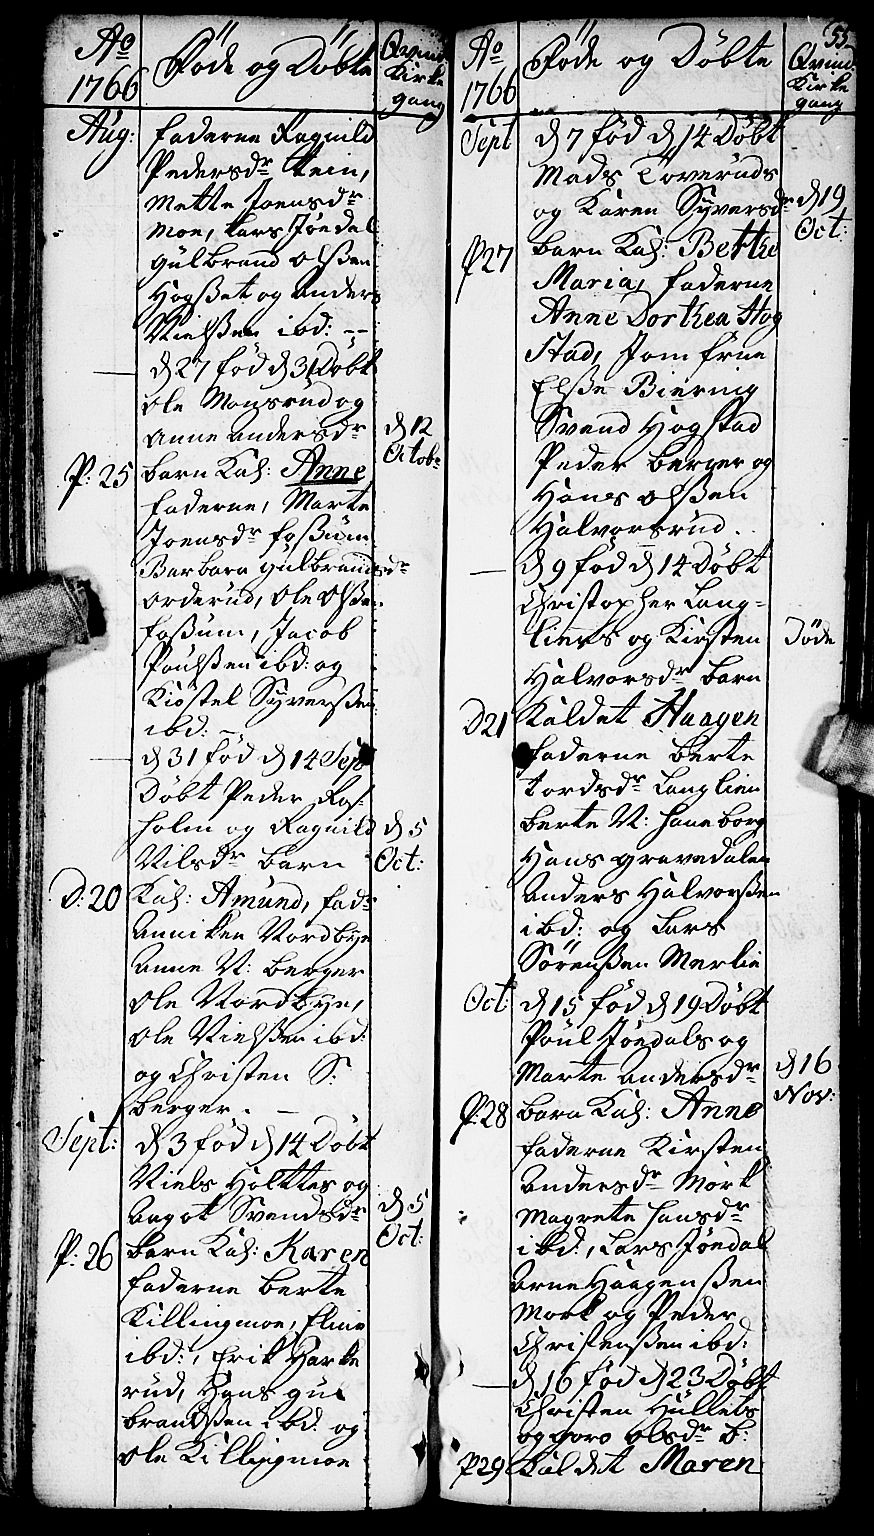 Ao
1766
Føde og Døbte
Qvind
Kirke
gang
Aug:
Faderne Ragnild
Pedersdr. Stein,
Mette Joensdr.
Moe, Lars Jøndal
Gulbrand Olßen
Hogßet og Anders
Nielßen ibd: --
d 27 Fød d 31 Døbt
Ole Monsrud og
Anne Andersdr.
d 12
Octobr
P: 25
barn Kal: Anne
Faderne, Marte
Joensdr. Foßum
Barbara Gulbrandsdr
Orderud, Ole Olßen
Foßum, Jacob
Poulßen ibd: og
Kiøstel Syverßen
ibd: -
d 31 Fød d 14 Sept
Døbt Peder Ros-
holm og Ragnild
Nilsdr. barn
d 5
Oct:
D: 20
Kal: Amund, Fadr
Anniken Nordbye
Anne N: berger
Ole Nordbye,
Ole Nielßen ibd:
og Christen S:
berger. -
Sept:
d 3 Fød d 14 Døbt
Niels Holttes og
Aagot Svendsdr
d 5
Oct:
P: 26
barn Kal: Karen
Faderne berte
Killingmoe, Eline
ibd:, Erik Harke
rud, Hans Gul
brandßen ibd. og
Ole Killingmoe
55
Ao
1766
Føde og Døbte
Qvind
Kirke
gang
Sept
d 7 Fød d 14 Døbt
Mads Toveruds
og Karen Syversdr
d 19
Oct:
P: 27
barn Kal: Bethe
Maria, Faderne
Anne Dorthea Hog
Stad, Jomfrue
Elße Biering
Svend Hogstad
Peder berger og
Hans Olßen
Halvorsrud.
d 9 Fød d 14 Døbt
Christopher Lang-
liens og Kirsten
Døde
Halvorsdr. barn
D 21
Kaldet Haagen
Faderne berte
Tordsdr. Langlien
berte N: Haneborg
Hans Gravedalen
Anders Halvorßen
ibd: og Lars
Sørenßen Merlie
Oct:
d 15 Fød d 19 Døbt
Poul Jøndals og
Marte Andersdr
d 16
Nov:
P: 28
barn Kal: Anne
Faderne Kirsten
Andersdr. Mork
Magrete Hansdr
ibd:, Lars Jøndal
Arne Haagenßen
Mork og Peder
Christenßen ibd:
d 16 Fød d 23 Døbt
Christen Hullets
og Goro Olsdr. b:
P 29
Kaldet Maren